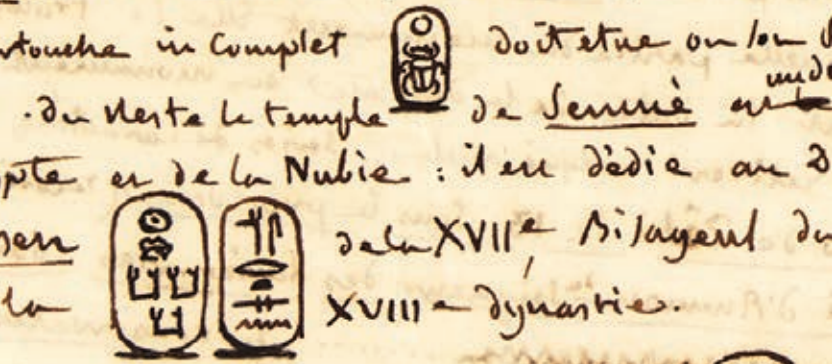 incomplet doit etre ou
du reste le temple de Semné
et de la Nubie : il est dédié au D
de la XVIIe, Bisayeul du
la XVIIIe dynastie.